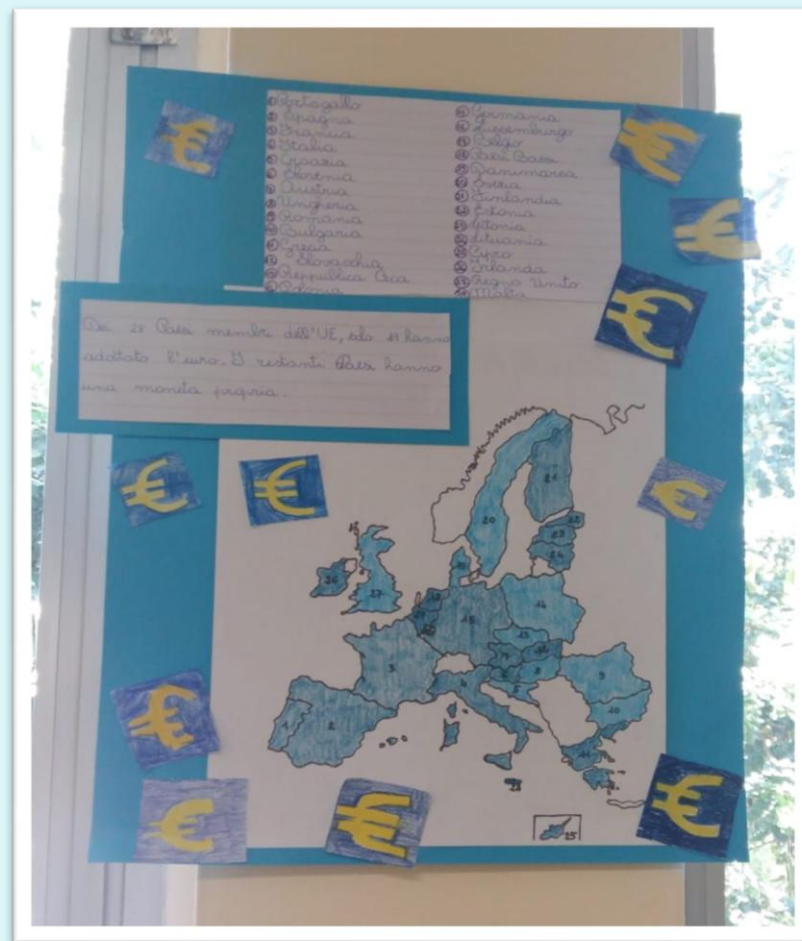 1 Portogallo
2 Spagna
3 Francia
4 Italia
5 Croazia
6 Slovenia
7 Austria
8 Ungheria
9 Romania
10 Bulgaria
11 Grecia
12 Slovacchia
13 Reppublica Ceca
14 Polonia
15 Germania
16 Lussemburgo
17 Belgio
18 Paesi Bassi
19 Danimarca
20 Svezia
21 Finlandia
22 Estonia
23 Letonia
24 Lituania
25 Cipro
26 Irlanda
27 Regno Unito
28 Malta
Dei 28 Paesi membri dell'UE, solo 19 hanno
adottato l'euro. I restanti Paesi hanno
una moneta propria.
€
€
€
€
€
€
€
€
€
€
€
21
20
22
23
24
19
26
27
18
17
16
15
14
13
12
3
7
8
6
5
4
9
10
1
2
11
28
25